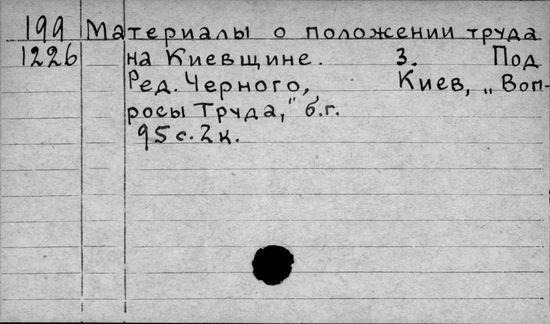 199 Материалы о положении труда
1226 на Киевщине. 3. Под
Ред. Черного, Киев, „Воп-
росы Труда," б.г.
95 с. 2 к.